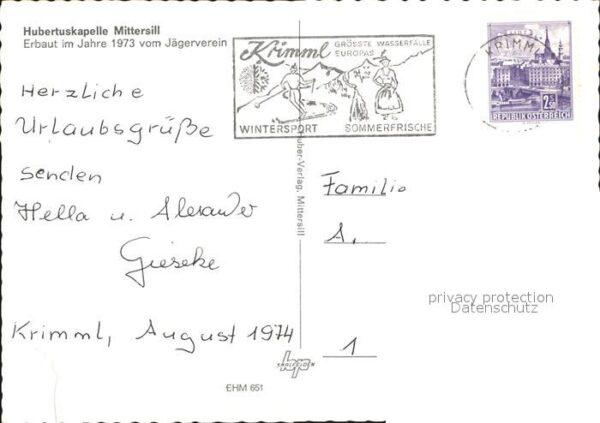 Hubertuskapelle Mittersill
Erbaut im Jahre 1973 vom Jägerverein
Krimml
GRÖSSTE WASSERFÄLLE
EUROPAS
WINTERSPORT SOMMERFRISCHE
KRIMML
REPUBLIK ÖSTERREICH
Herzliche
Urlaubsgrüße
senden
Hella u. Alexander
Gieseke
Krimml, August 1974
Huber-Verlag, Mittersill
Familie
A.
1
privacy protection
Datenschutz
SAALFELDEN
EHM 651